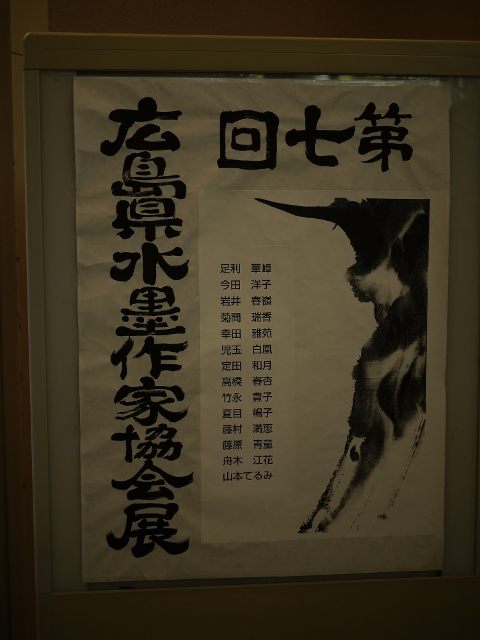 第七回
広島県水墨作家協会展
足利 華嶂
今田 洋子
岩井 春嶺
菊間 瑞香
幸田 雅苑
児玉 白凰
定田 和月
高橋 春杏
竹永 豊子
夏目 暢子
藤村 満恵
藤原 青童
舟木 江花
山本てるみ